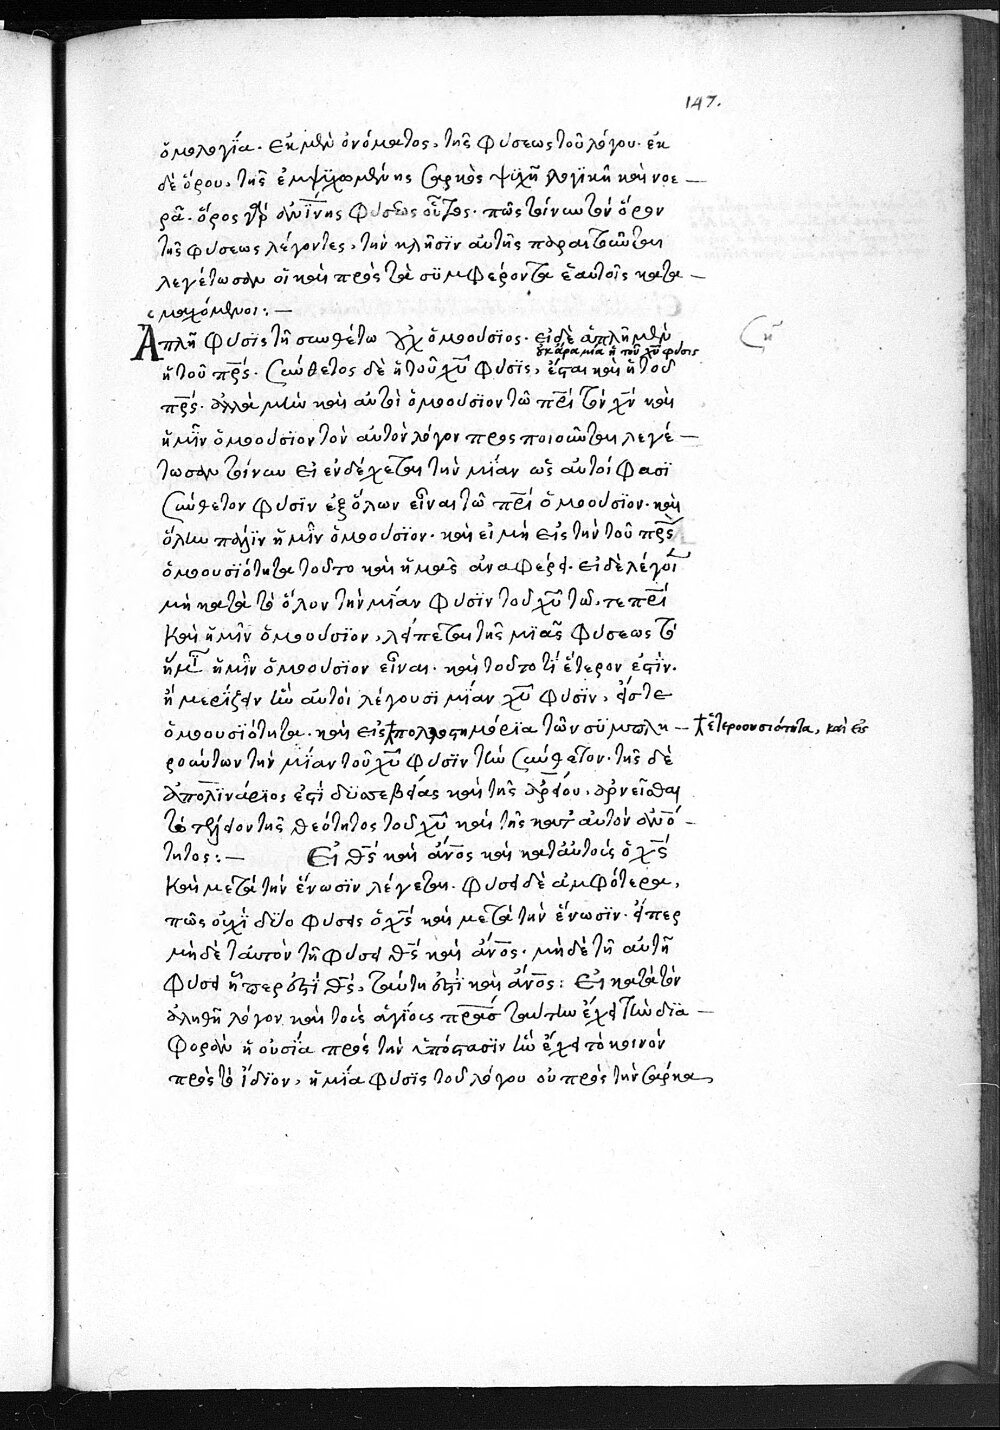 147.
ὁμολογία. ἐκ μὲν ὀνόματος, τῆς φύσεως τοῦ λόγου. ἐκ
δὲ ὅρου, τῆς ἐμψυχωμένης σαρκὸς ψυχῇ λογικῇ καὶ νοε
ρᾷ. ὅρος γὰρ φύσεως οὗτος. πῶς τίνων τὸν ὅρον
τῆς φύσεως λέγοντες, τὴν κλῆσϊν αὐτῆς παραιτοῦνται
λεγέτωσαν οἱ καὶ πρὸς τὰ συμφέροντα ἑαυτοῖς κατα
μαχόμενοι: —
Ἁπλῆ φύσϊς τῇ συνθέτω οὐχ ὁμοούσϊος. εἰ δὲ ἁπλῆ μὲν
οὐκ ἄρα μία ἡ τοῦ χυ φύσις
ἡ τοῦ πρς. σύνθετος δὲ ἡ τοῦ χυ φύσϊς, ἔσται καὶ ἡ τοῦ
πρς. ἀλλὰ μὴν καὶ αὐτοὶ ὁμοούσϊον τῶ πρι τὸν χν καὶ
ἡμῖν ὁμοούσϊον τὸν αὐτὸν λόγον προσποιοῦνται λεγέ
τωσαν τοίνυν εἰ ἐνδέχεται τὴν μίαν ὡς αὐτοί φασϊ
σύνθετον φύσϊν ἐξ ὅλων εἶναι τῶ πρι ὁμοούσϊον. καὶ
ὅλην πάλϊν ἡμῖν ὁμοούσϊον. καὶ εἰ μὴ εἰς τὴν τοῦ πρς
ὁμοουσιότητα τοῦτο καὶ ἡμᾶς ἀναφέρει. εἰ δὲ λέγοι
μὴ κατὰ τὸ ὅλον τὴν μίαν φύσϊν τοῦ χυ τῶ, τε πρι
καὶ ἡμῖν ὁμοούσϊον, λείπεται τῆς μϊᾶς φύσεως τὸ
ἥμϊ ἡμῖν ὁμοούσϊον εἶναι. καὶ τοῦτο τί ἕτερον ἐστίν.
ἢ μερίζειν ἣν αὐτοὶ λέγουσϊ μίαν χυ φύσϊν, εἴς τε
ὁμοουσϊότητα. καὶ εἰς πολλοστημόρϊα τῶν συμπλη
ἑτεροουσιότητα, καὶ εἰς
ρούντων τὴν μίαν τοῦ χυ φύσϊν τὴν σύνθετον. τῆς δὲ
ἀπολϊναρίος ἐστὶ δυσσεβείας καὶ τῆς ἀρείου, ἀρνεῖσθαι
τὸ τέλειον τῆς θεότητος τοῦ χυ καὶ τῆς κατ' αὐτὸν ἀνό
τητος: — Εἰ θς καὶ ἄνος καὶ κατ' αὐτοὺς ὁ χς
καὶ μετὰ τὴν ἕνωσϊν λέγεται. φύσει δὲ ἀμφότερα,
πῶς οὐχὶ δύο φύσεις ὁ χς καὶ μετὰ τὴν ἕνωσϊν. εἴπερ
μὴ δὲ ταυτὸν τῇ φύσει θς καὶ ἄνος. μὴ δὲ τῇ αὐτῇ
φύσει ᾗπερ ἐστὶ θς, ταύτη ἐστὶ καὶ ἄνος: Εἰ κατὰ τὸν
ἀληθῆ λόγον καὶ τοῖς ἁγίοις πράσι ταύτην ἔχει τὴν δϊα
φορὰν ἡ οὐσία πρὸς τὴν ὑπόστασϊν ἣν ἔχει τὸ κοινὸν
πρὸς τὸ ἴδϊον, ἡ μία φύσϊς τοῦ λόγου οὐ πρὸς τὴν σάρκα,